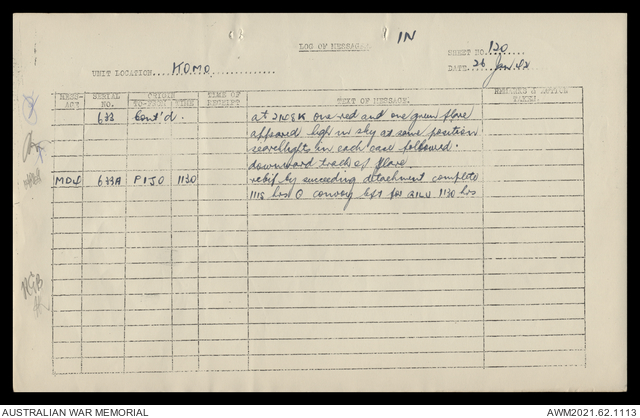 IN
LOG OF MESSAGES
SHEET NO. 120
UNIT LOCATION....KOMO
DATE. 26 Jan
MESS-AGE SERIAL NO. ORIGIN TO-FROM TIME TIME OF RECEIPT TEXT OF MESSAGE. REMARKS & ACTION TAKEN.
633 Cont'd. at one red and one green flare
appeared high in sky at same position
searchlights in each case followed.
downward track of flare.
633A 1130 by succeeding detachment complete
1115 hrs convoy left for 1130 hrs
AUSTRALIAN WAR MEMORIAL
AWM2021.62.1113